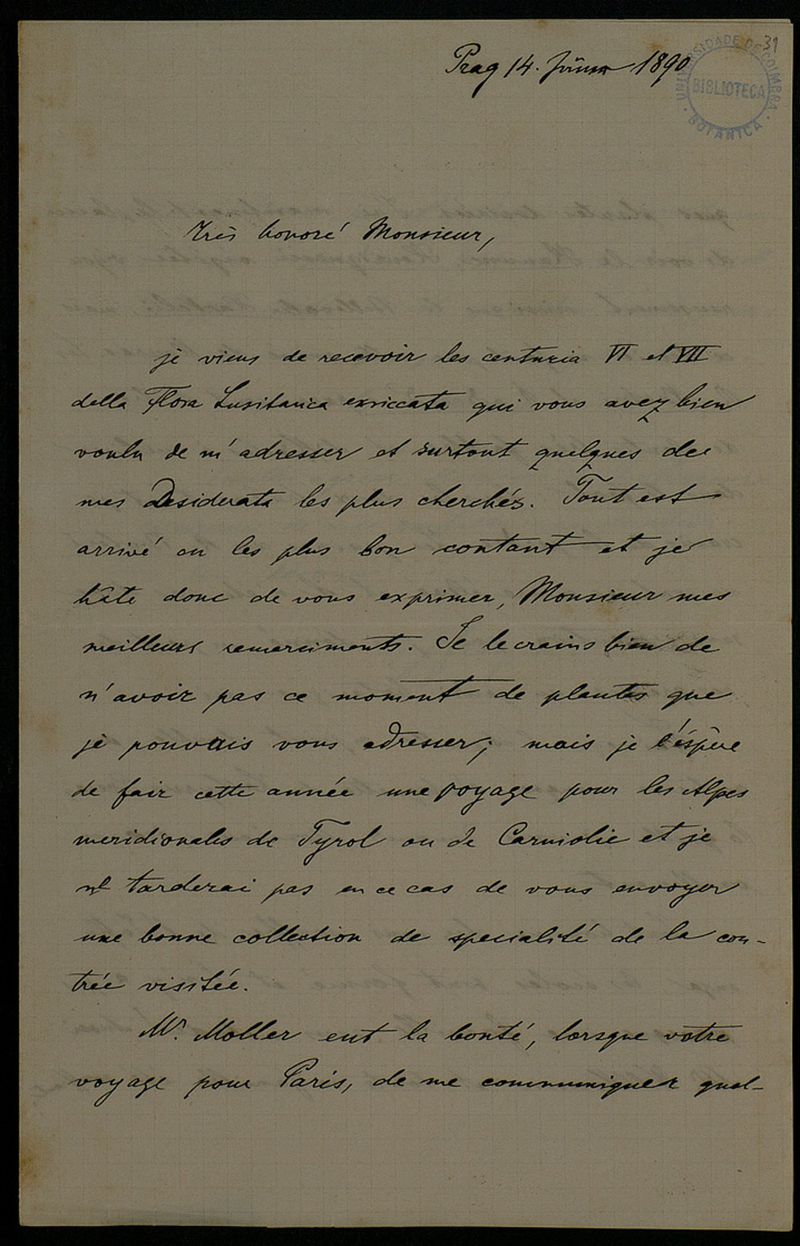 39
UNIVERSIDADE DE COIMBRA
BIBLIOTECA
BOTANICA
Prag 14. 1890
très honoré Monsieur,
je viens de recevoir les centuria VI et VII
della Flora Lusitanica exsiccata qui vous avez bien
voulu de m'adresser et surtout quelques de
mes Desiderata les plus cherchés. Tout est
arrivé en les plus bon contant et je
hâte donc de vous exprimer, Monsieur mes
meilleurs remerciments. Je le crains bien de
n'avoir pas ce moment de plantes que
je pouvais vous adresser; mais je l'éspère
de fair cette année une voyage pour les Alpes
meridionales de Tyrol ou de Carniolie et je
ne tarderai pas en ce cas de vous envoyer
une bonne collection de specialité de la con-
trée visitée.
Mr. Moller eut la bonté, lorsque votre
voyage pour Paris, de me communiquer quel-